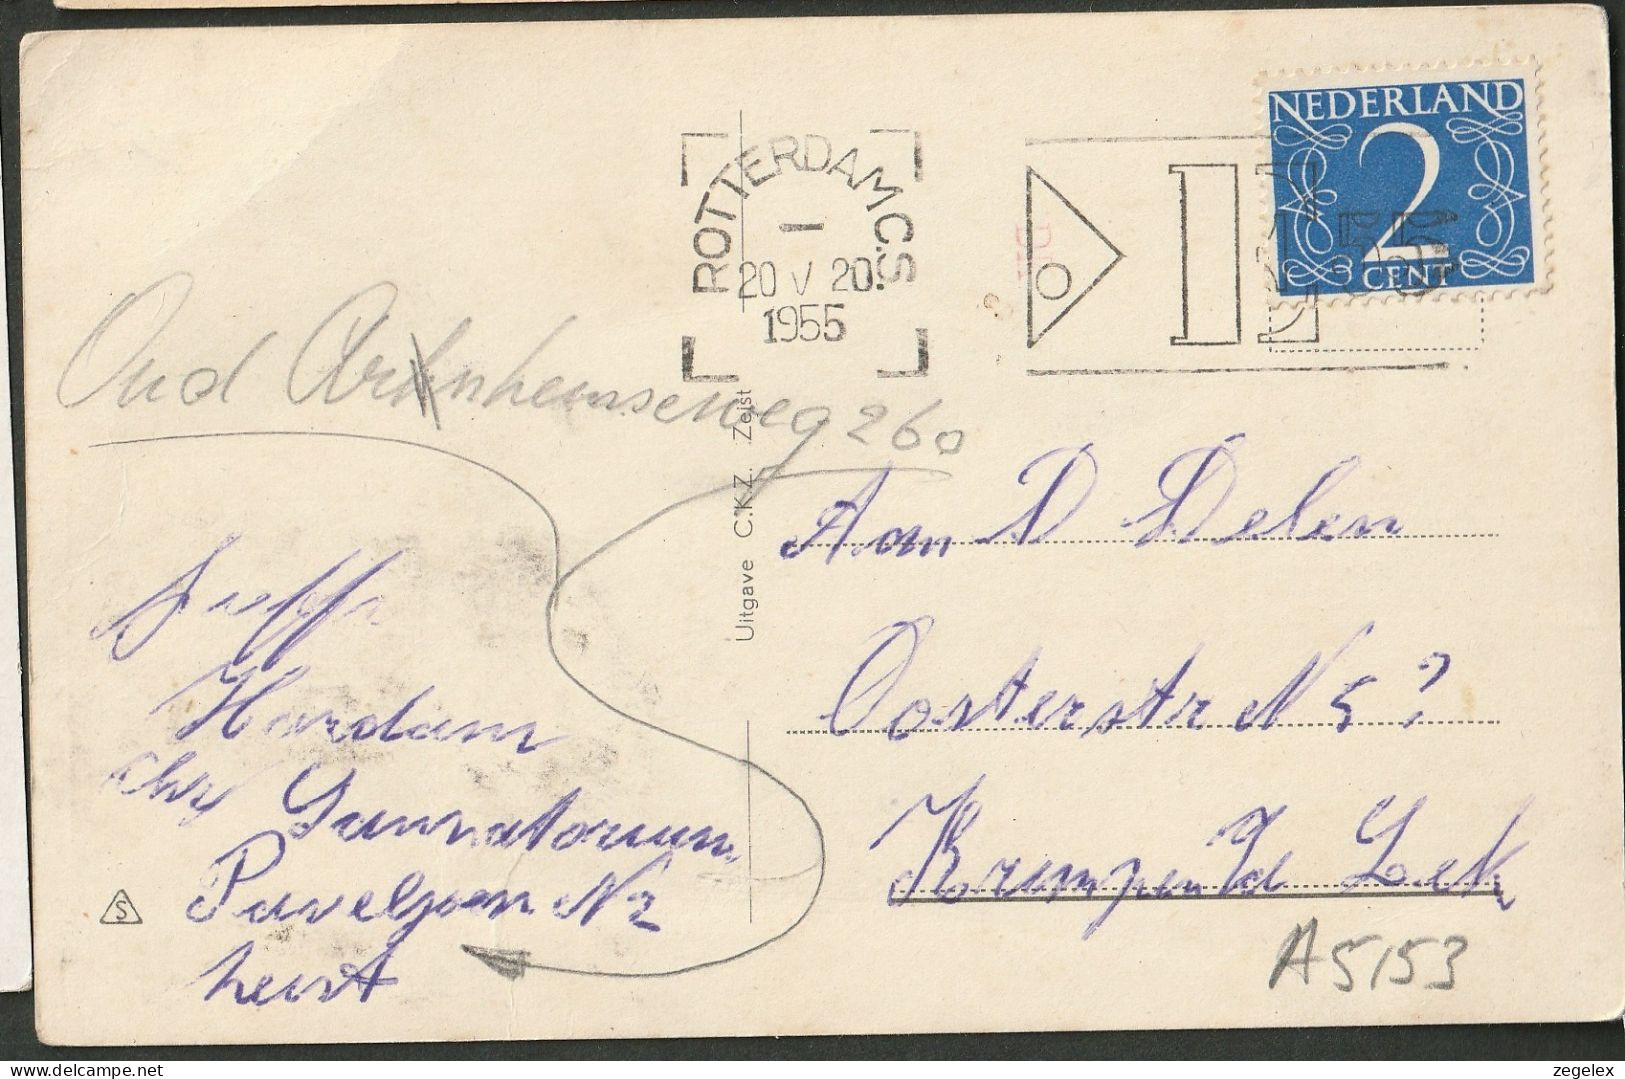 NEDERLAND
2
CENT
ROTTERDAM C.S.
I
20 V 20.
1955
1.55
Oud Arnhemseweg 260
Uitgave C.K.Z. Zeist
Aan D Delen
Oosterstr N 5?
Krimpen a/d Lek
Hardam
Sannatorium
Paveljoen N 2
S
A5153
zegelex